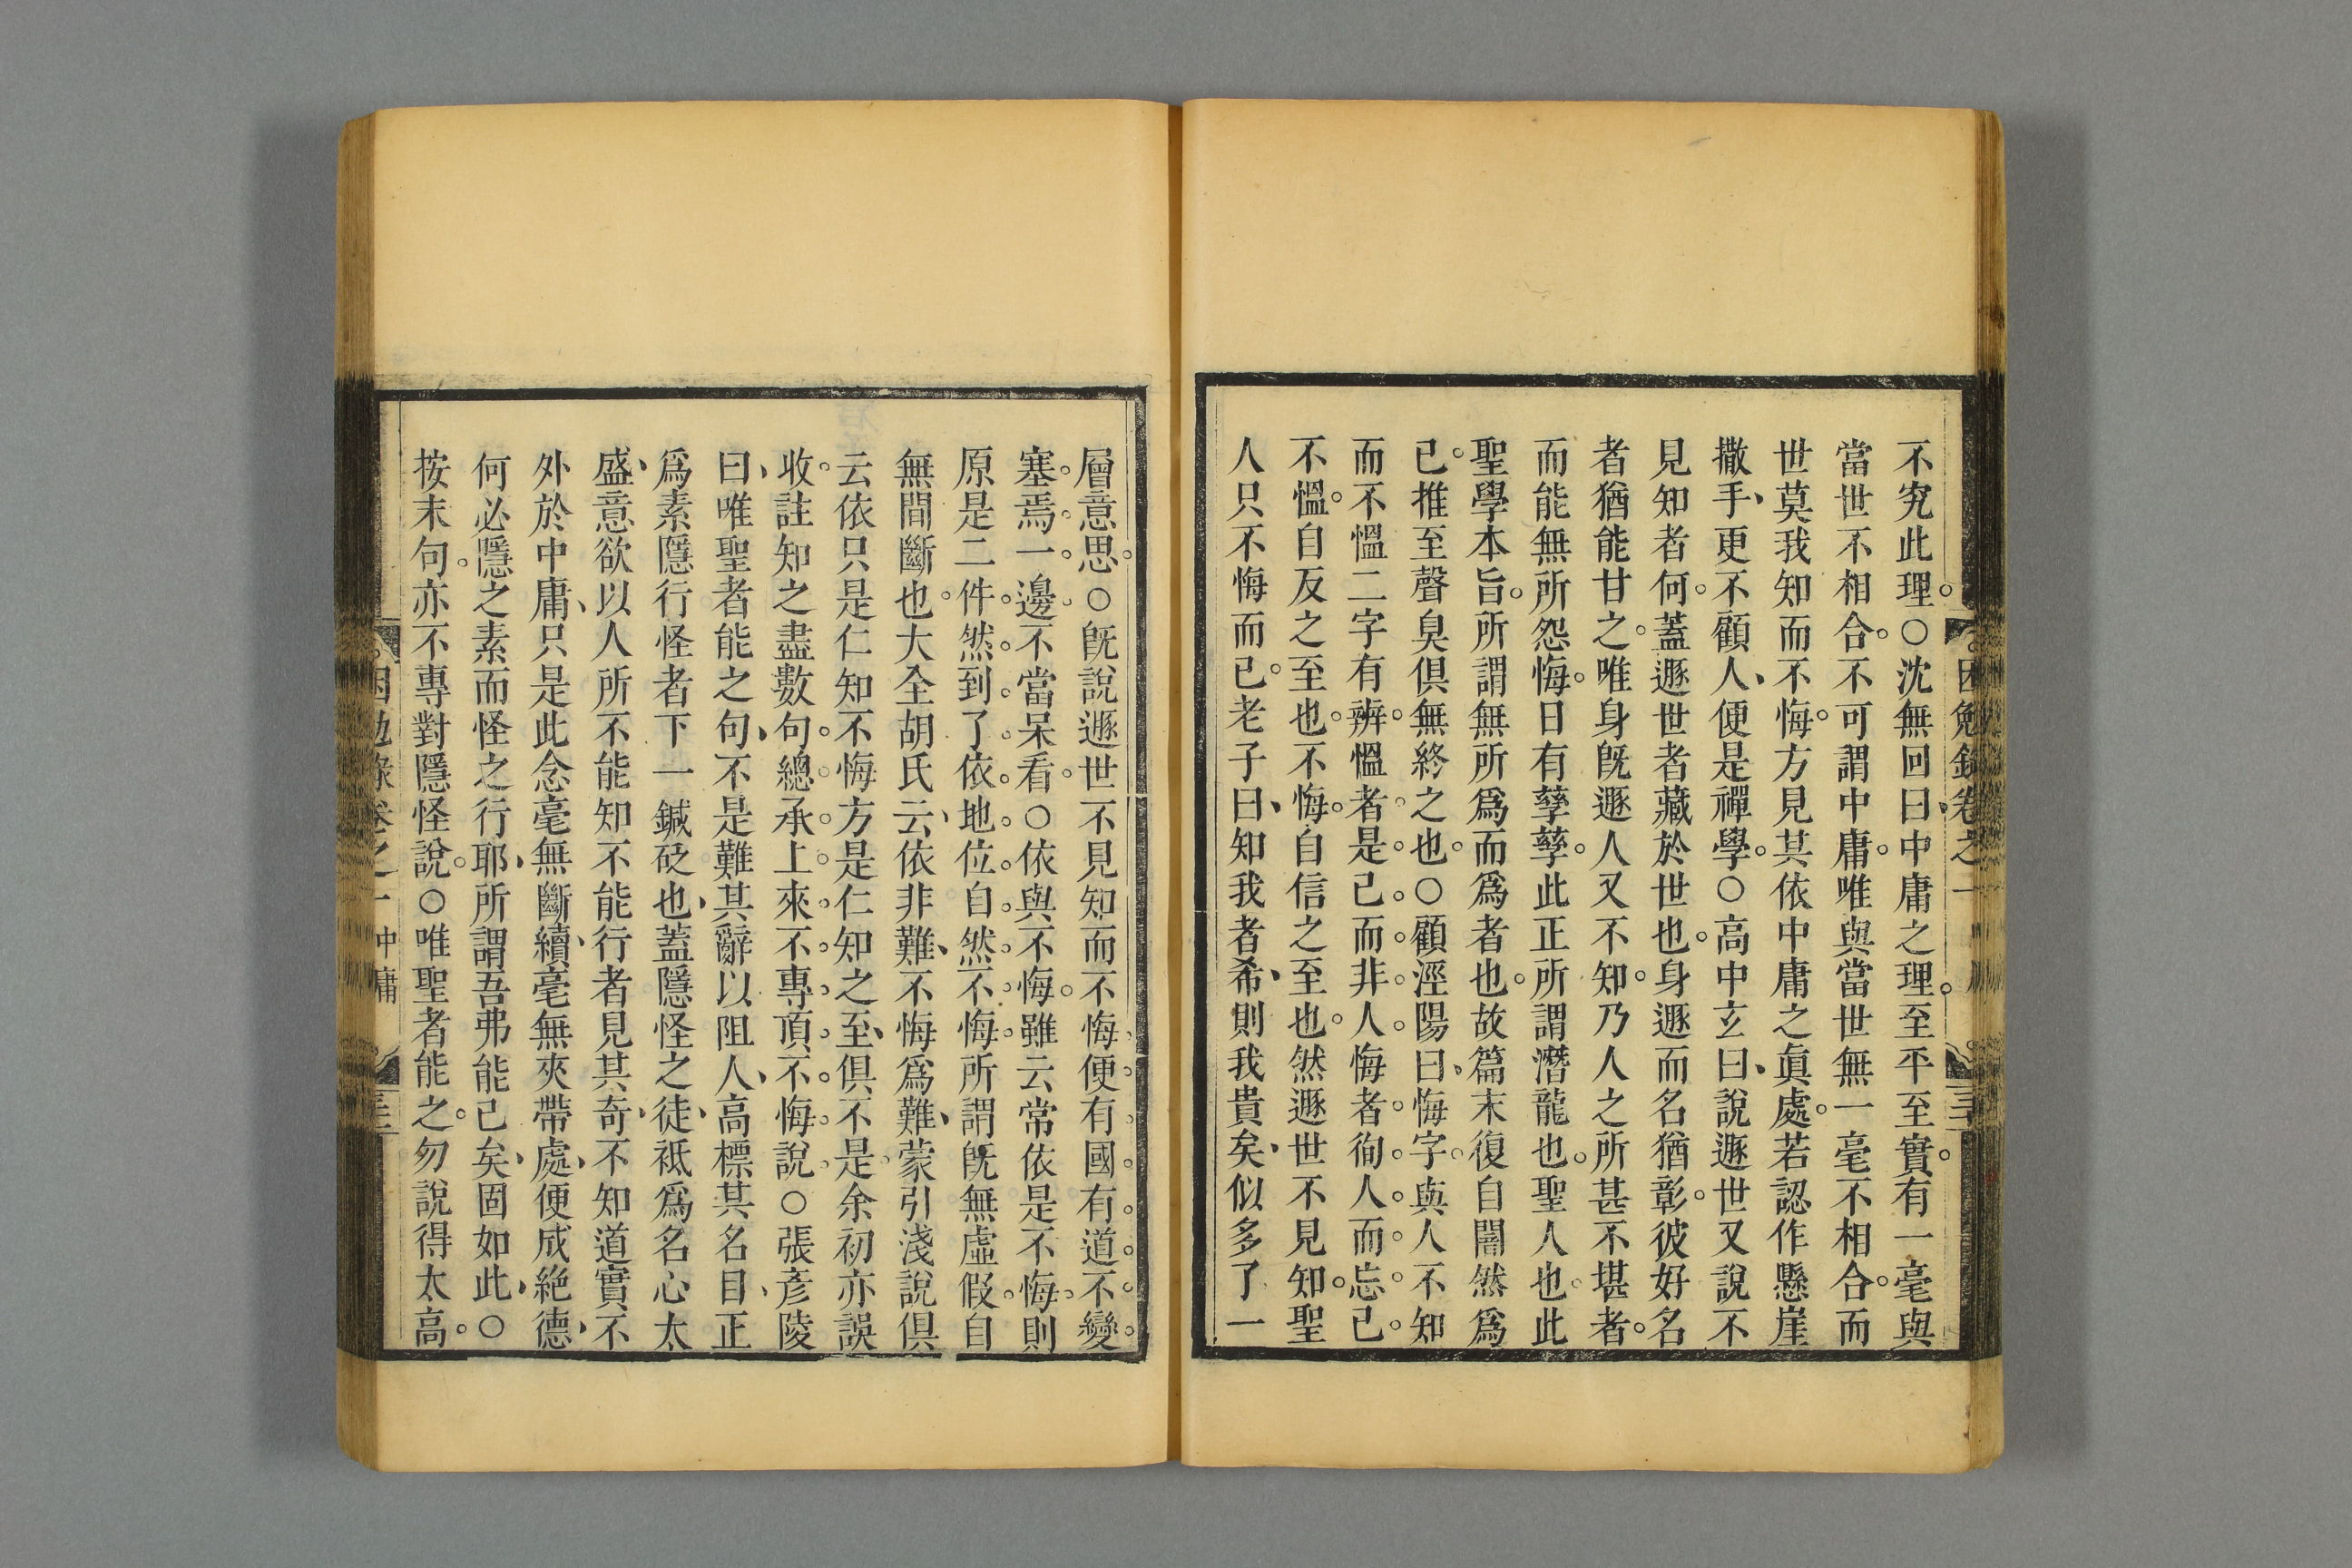 不究此理。○沈無回曰、中庸之理。至平至實。有一毫與
當世不相合。不可謂中庸。唯與當世無一毫不相合。而
世莫我知而不悔。方見其依中庸之眞處。若認作懸崖
撒手、更不顧人、便是禪學。○高中玄曰、說遯世又說不
見知者何。蓋遯世者藏於世也。身遯而名猶彰。彼好名
者猶能甘之。唯身旣遯人又不知。乃人之所甚不堪者。
而能無所怨悔。日有孳孳。此正所謂潛龍也。聖人也。此
聖學本旨。所謂無所爲而爲者也。故篇末復自闇然爲
已。推至聲臭俱無終之也。○顧涇陽曰、悔字。與人不知
而不慍二字有辨。慍者是己而非人。悔者徇人而忘己。
不慍。自反之至也。不悔。自信之至也。然遯世不見知。聖
人只不悔而已。老子曰、知我者希、則我貴矣、似多了一
層意思。○旣說遯世不見知而不悔便有國有道不變
塞焉一邊不當呆看。○依與不悔。雖云常依是不悔則
原是二件。然到了依地位自然不悔所謂旣無虛假自
無間斷也。大全胡氏云、依非難、不悔爲難、蒙引淺說俱
云依只是仁知不悔方是仁知之至、俱不是。余初亦誤
收。註知之盡數句。總承上來。不專頂不悔說。○張彥陵
曰、唯聖者能之句、不是難其辭以阻人、高標其名目、正
爲素隱行怪者下一鍼砭也、蓋隱怪之徒、祇爲名心太
盛、意欲以人所不能知不能行者見其奇、不知道實不
外於中庸、只是此念毫無斷續、毫無夾帶處、便成絶德、
何必隱之素而怪之行耶、所謂吾弗能已矣、固如此、○
按末句。亦不專對隱怪說。○唯聖者能之。勿說得太高。
困勉錄卷之一
困勉錄卷之一 中庸